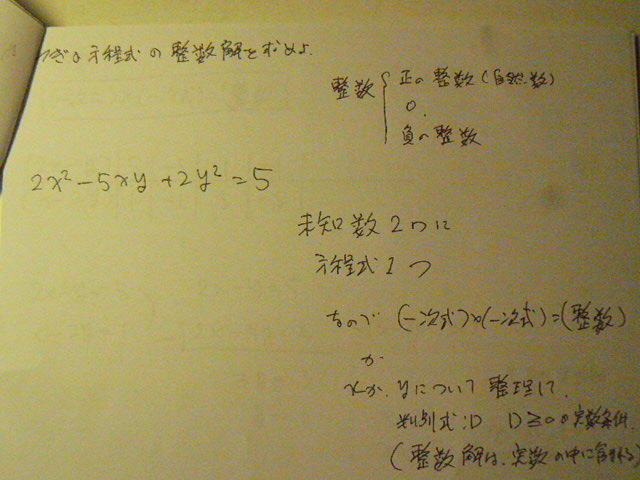 つぎの方程式の整数解を求めよ.
整数 { 正の整数(自然数)
0.
負の整数
2x² - 5xy + 2y² = 5
未知数2つに
方程式1つ
なので (一次式)×(一次式)=(整数)
か
xか、yについて整理して、
判別式:D D≧0の実数条件
(整数解は、実数の中に含まれる)